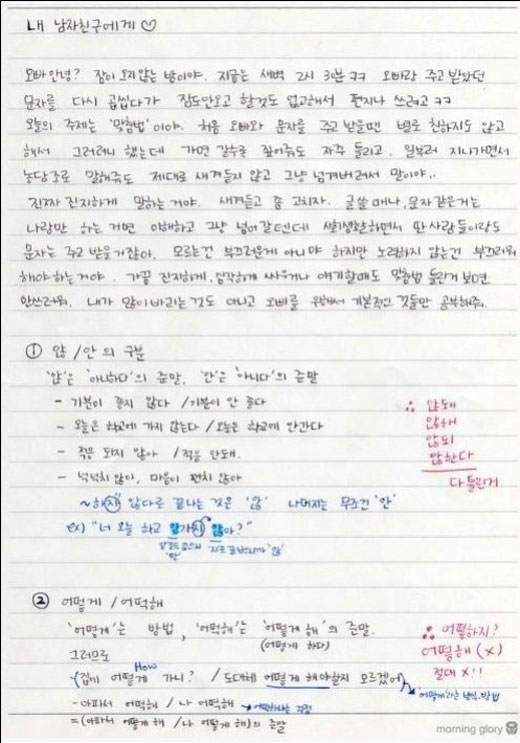 내 남자친구에게 ♡
오빠 안녕? 잠이 오지않는 밤이야. 지금은 새벽 2시 30분 ㅋㅋ 오빠랑 주고 받았던
문자를 다시 곱씹다가 잠도안오고 할것도 없고해서 편지나 쓰려고 ㅋㅋ
오늘의 주제는 '맞춤법' 이야. 처음 오빠와 문자를 주고 받을땐 별로 친하지도 않고
해서 그러려니 했는데 가면 갈수록 짚어줘도 자주 틀리고, 일부러 지나가면서
농담조로 말해줘도 제대로 새겨듣지 않고 그냥 넘겨버려서 말이야..
진짜 진지하게 말하는 거야. 새겨듣고 좀 고치자. 글쓸 때나, 문자 같은거는
나랑만 하는 거면 이해하고 그냥 넘어갈텐데 사회생활하면서 딴 사람들이랑도
문자는 주고 받을거잖아. 모르는건 부끄러운게 아니야 하지만 노력하지 않는건 부끄러워
해야하는거야. 가끔 진지하게, 심각하게 싸우거나 얘기할때도 맞춤법 틀린거 보면
안쓰러워. 내가 많이바라는것도 아니고 오빠를 위해서 기본적인 것들만 공부해줘.
① 않 / 안 의 구분
'않'은 '아니하다'의 준말, '안'은 '아니다'의 준말
- 기분이 좋지 않다 / 기분이 안 좋다
- 오늘은 학교에 가지 않는다 / 오늘은 학교에 안간다
- 적응 되지 않아 / 적응 안돼.
- 넉넉치 않아, 마음이 편치 않아
∴ 않돼
않해
않되
않한다
다 틀린거
~하지 않다로 끝나는 것은 '않' 나머지는 무조건 '안'
ex) "너 오늘 학교 안가지 않아?"
'안'
지로 끝나니까 '않'
② 어떻게 / 어떡해
'어떻게'는 방법, '어떡해'는 '어떻게 해'의 준말.
(어떻게 하다)
그러므로
How
- (집에 어떻게 가니? / 도대체 어떻게 해야할지 모르겠어)
어떻게라는 방식, 방법
- 아파서 어떡해 / 나 어떡해
= (아파서 어떻게 해 / 나 어떻게 해)의 준말
∴ 어떡하지?
어떻해 (X)
절대 X!!
morning glory